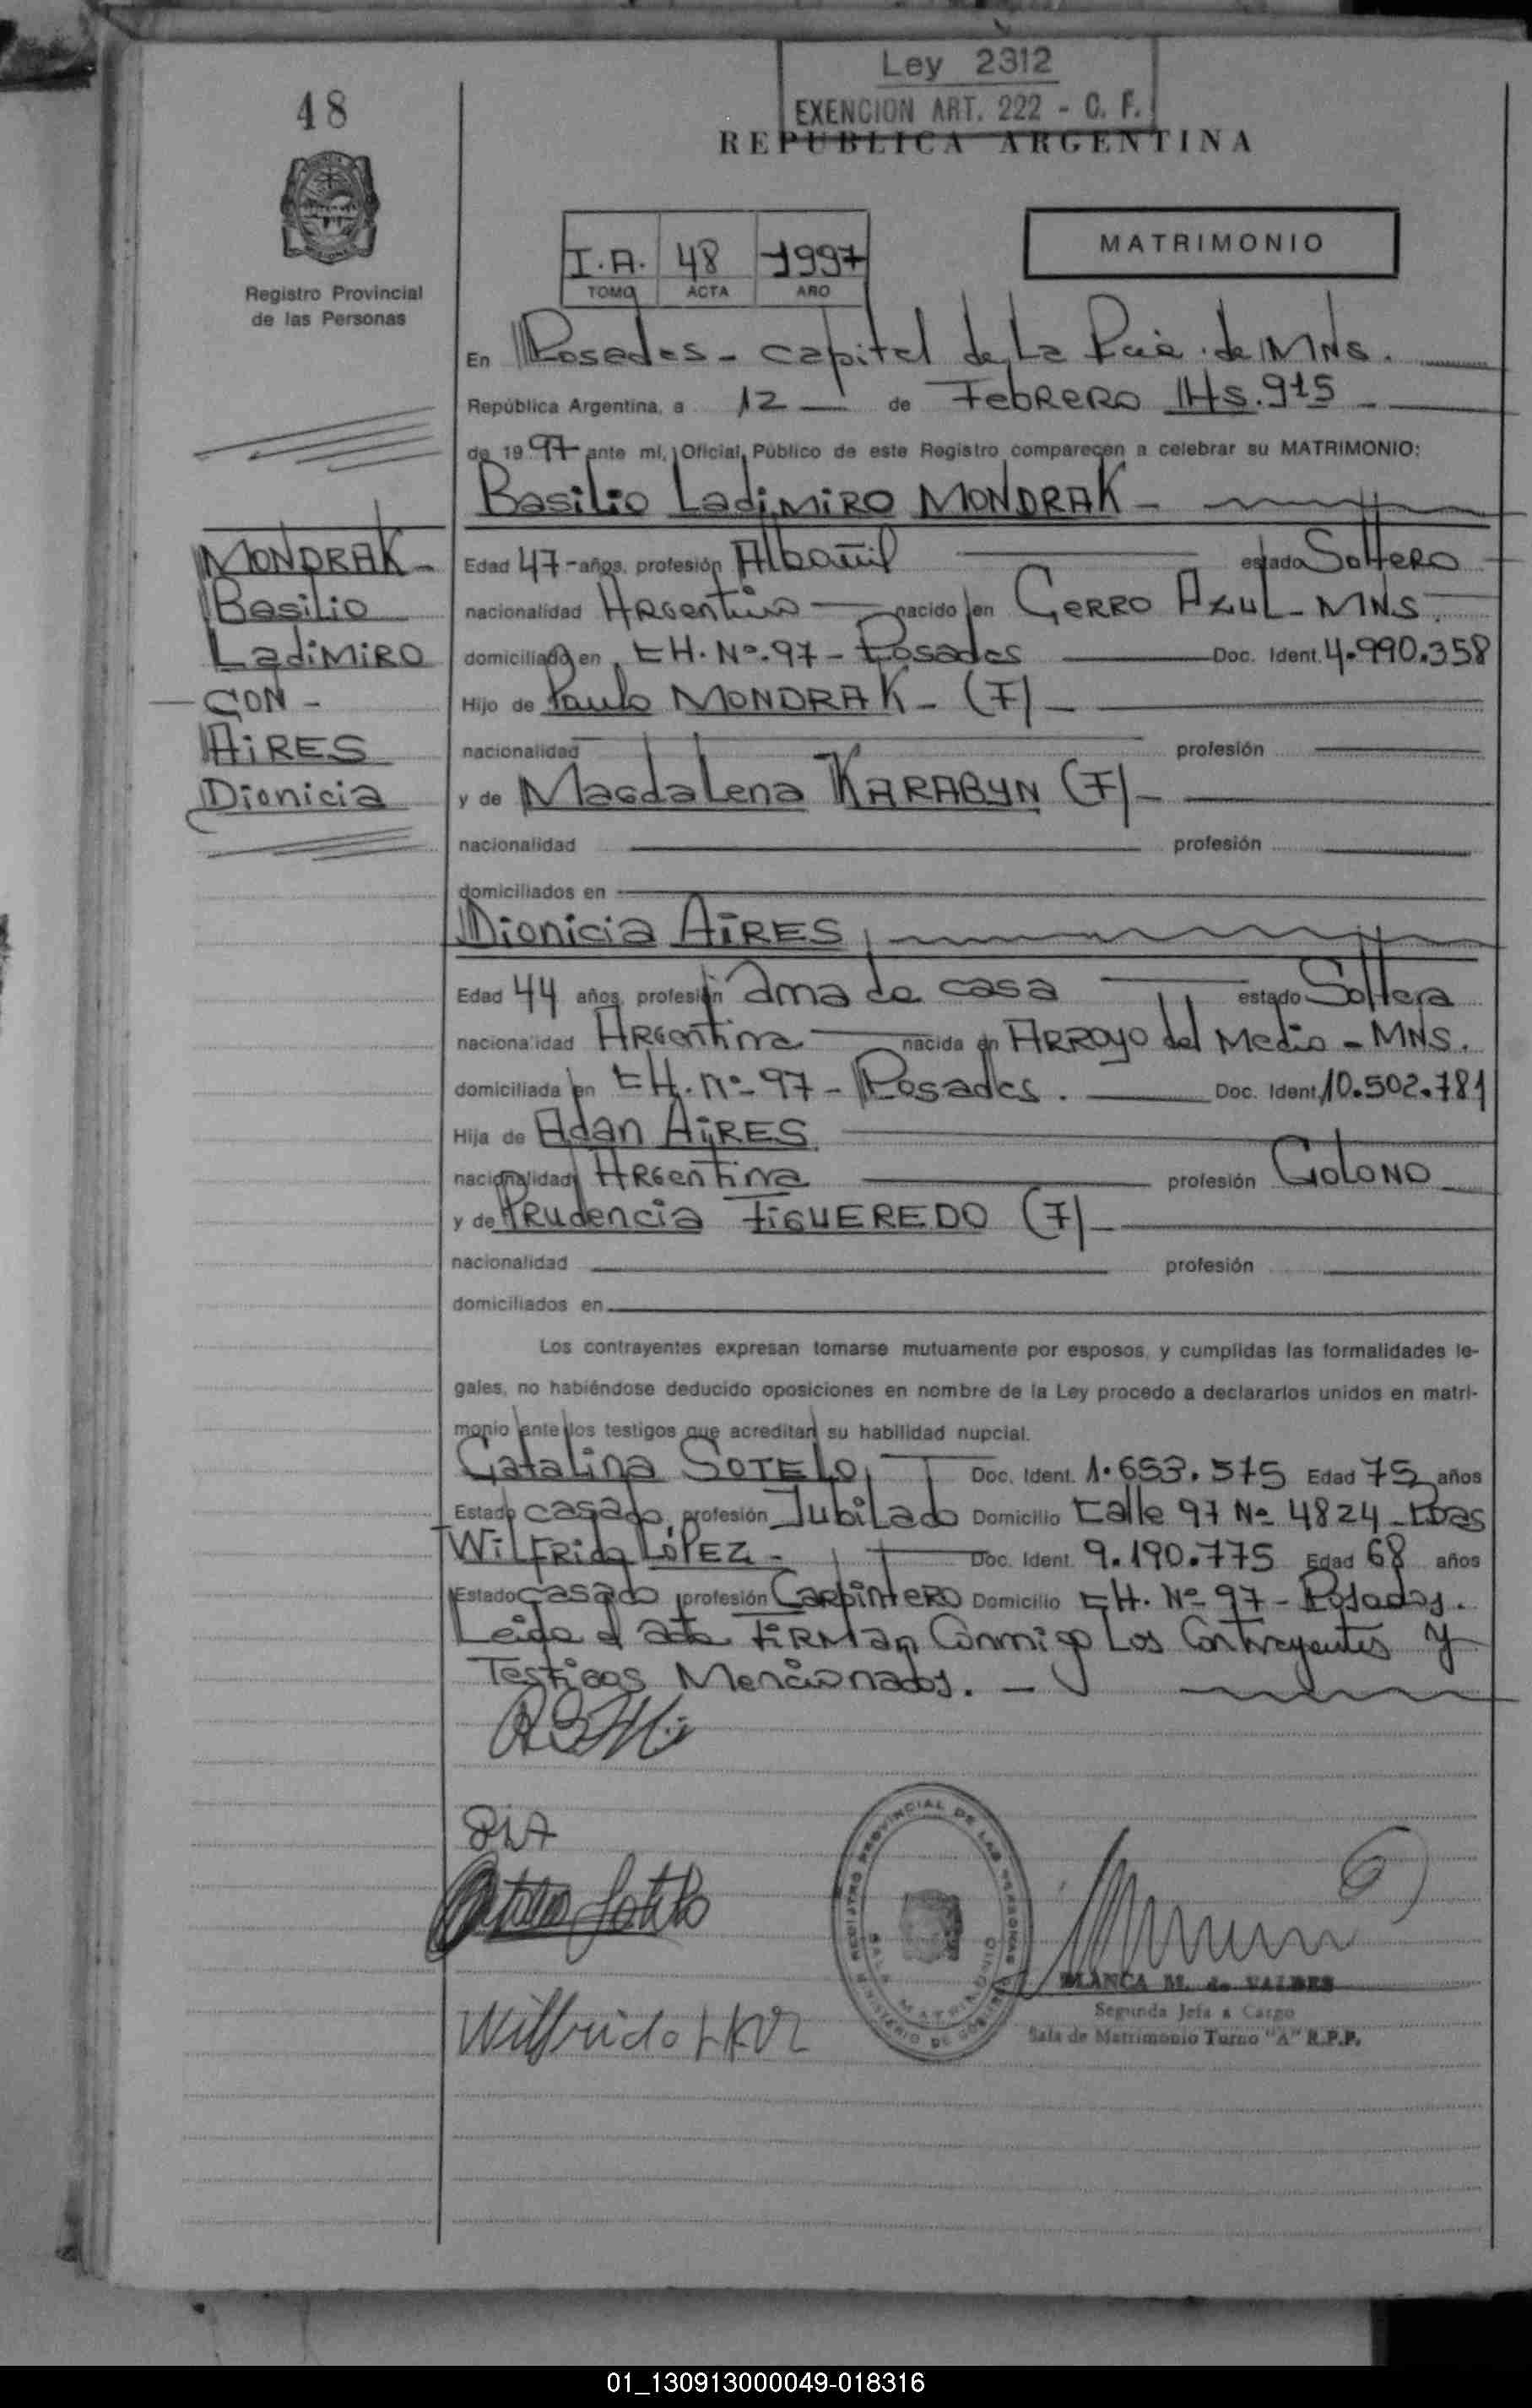 Ley 2312
EXENCION ART. 222 - C. F.
48
REPUBLICA ARGENTINA
I.A. 48 1997
TOMO ACTA AÑO
MATRIMONIO
Registro Provincial
de las Personas
En Posadas - capital de La Pcia. de MNS.
República Argentina, a 12 - de Febrero Hs. 915 -
de 1997 ante mi, Oficial Público de este Registro comparecen a celebrar su MATRIMONIO:
Basilio Ladimiro MONDRAK -
MONDRAK -
Basilio
Ladimiro
- CON -
AIRES
Dionicia
Edad 47 - años, profesión Albañil estado Soltero
nacionalidad Argentino nacido en Cerro Azul - MNS.
domiciliado en CH. Nº. 97 - Posadas Doc. Ident. 4.990.358
Hijo de Paulo MONDRAK - (F) -
nacionalidad profesión
y de Magdalena KARABYN (F) -
nacionalidad profesión
domiciliados en
Dionicia AIRES
Edad 44 años, profesión ama de casa estado Soltera
nacionalidad Argentina nacida en Arroyo del Medio - MNS.
domiciliada en CH. Nº 97 - Posadas. Doc. Ident. 10.502.781
Hija de Adan AIRES
nacionalidad Argentina profesión Colono
y de Prudencia FIGUEREDO (F) -
nacionalidad profesión
domiciliados en
Los contrayentes expresan tomarse mutuamente por esposos, y cumplidas las formalidades le-
gales, no habiéndose deducido oposiciones en nombre de la Ley procedo a declararlos unidos en matri-
monio ante los testigos que acreditan su habilidad nupcial.
Catalina SOTELO Doc. Ident. 1.653.575 Edad 75 años
Estado casado, profesión Jubilado Domicilio Calle 97 Nº 4824 - Pdas
Wilfrido LOPEZ - Doc. Ident. 9.190.775 Edad 68 años
Estado casado profesión Carpintero Domicilio CH. Nº 97 - Posadas.
Leida el acta FIRMAN Conmigo Los Contrayentes y
Testigos Mencionados. -
REGISTRO PROVINCIAL DE LAS PERSONAS
SALA MATRIMONIO
MINISTERIO DE GOBIERNO
BLANCA M. de VALDES
Segunda Jefa a Cargo
Sala de Matrimonio Turno "A" R.P.P.
Wilfrido
01_130913000049-018316